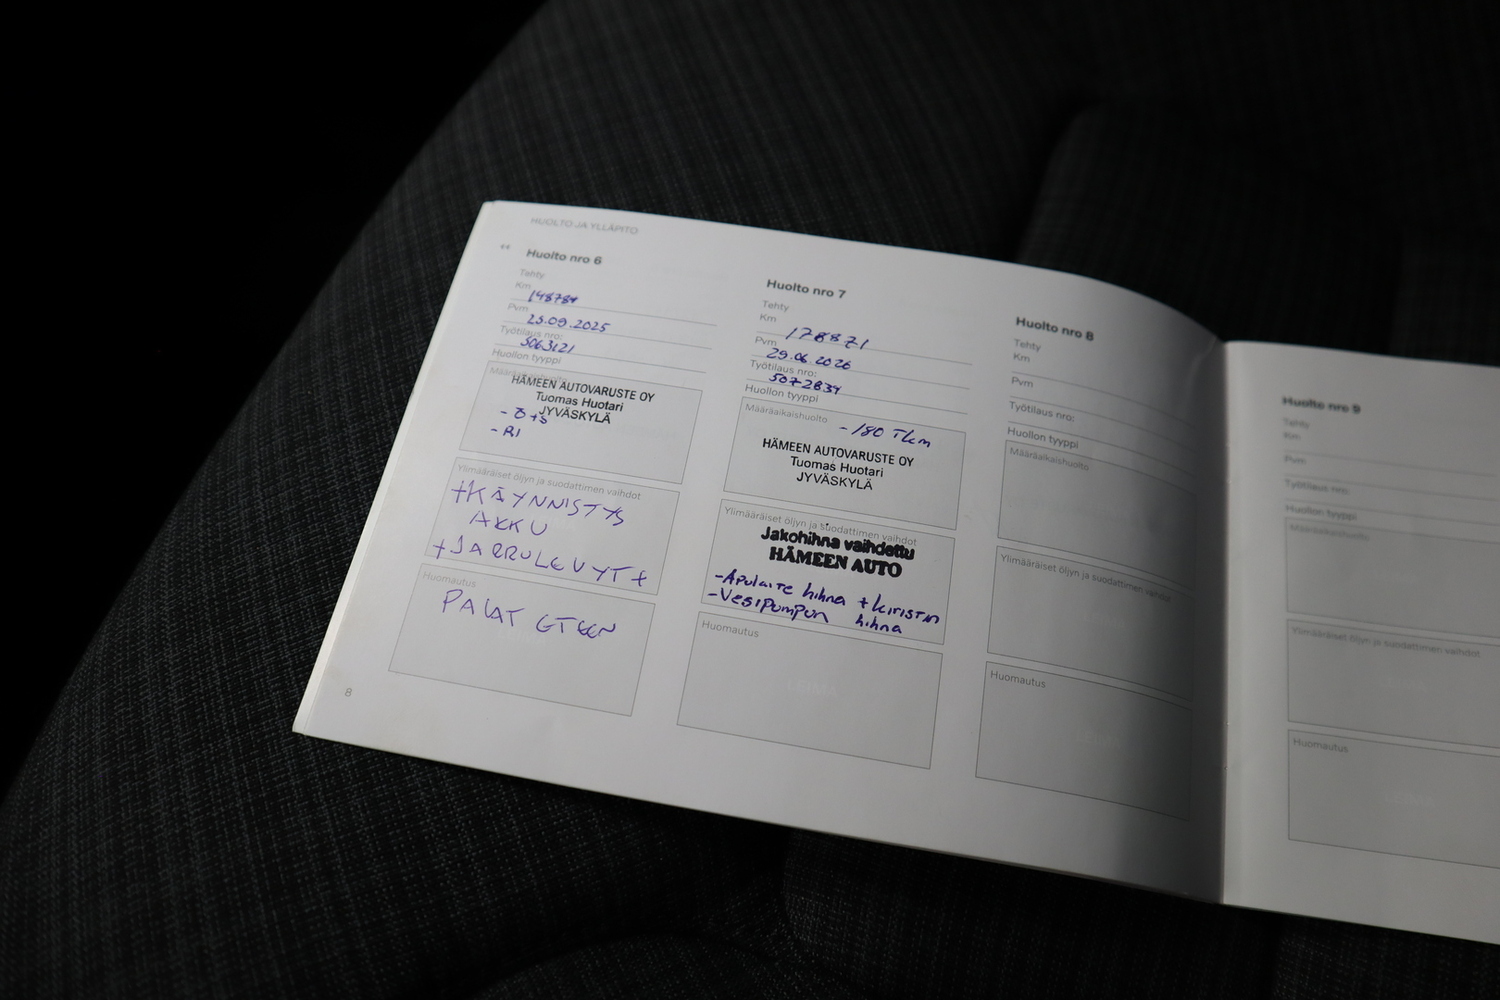 HUOLTO JA YLLÄPITO
Huolto nro 6
Tehty
Km
148784
Pvm
25.09.2025
Työtilaus nro:
5063121
Huollon tyyppi
Määräaikaishuolto
HÄMEEN AUTOVARUSTE OY
Tuomas Huotari
JYVÄSKYLÄ
- Ö+S
- RI
Ylimääräiset öljyn ja suodattimen vaihdot
+KÄYNNISTYS
AKKU
+JARRULEVYT+
Huomautus
PALAT ETEEN
8
Huolto nro 7
Tehty
Km
178871
Pvm
29.06.2026
Työtilaus nro:
5072834
Huollon tyyppi
Määräaikaishuolto
-180 Tkm
HÄMEEN AUTOVARUSTE OY
Tuomas Huotari
JYVÄSKYLÄ
Ylimääräiset öljyn ja suodattimen vaihdot
Jakohihna vaihdettu
HÄMEEN AUTO
-Apulaite hihna + kiristin
-Vesipumpun hihna
Huomautus
LEIMA
Huolto nro 8
Tehty
Km
Pvm
Työtilaus nro:
Huollon tyyppi
Määräaikaishuolto
Ylimääräiset öljyn ja suodattimen vaihdot
Huomautus
Huolto nro 9
Tehty
Km
Pvm
Työtilaus nro:
Huollon tyyppi
Määräaikaishuolto
Ylimääräiset öljyn ja suodattimen vaihdot
Huomautus
LEIMA